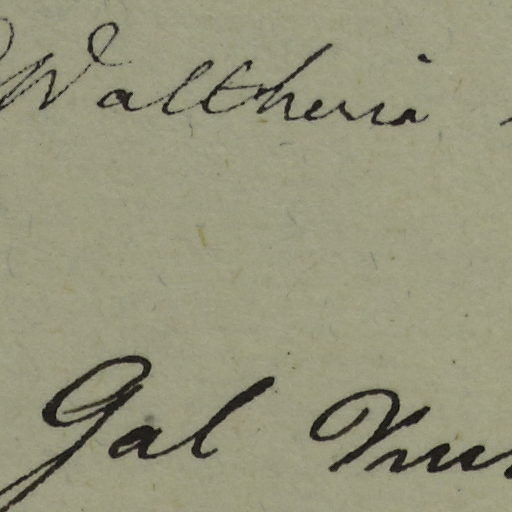 Waltheria
Gal